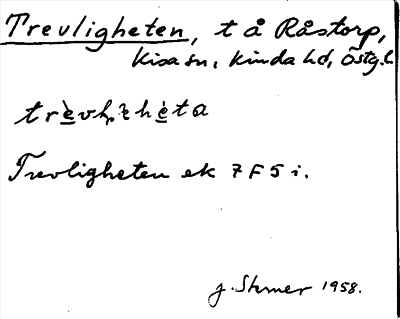 Trevligheten, t å Råstorp,
Kisa sn, Kinda hd, Östg. l.
Trevligheten ek 7 F 5 i.
J. Stumer 1958.